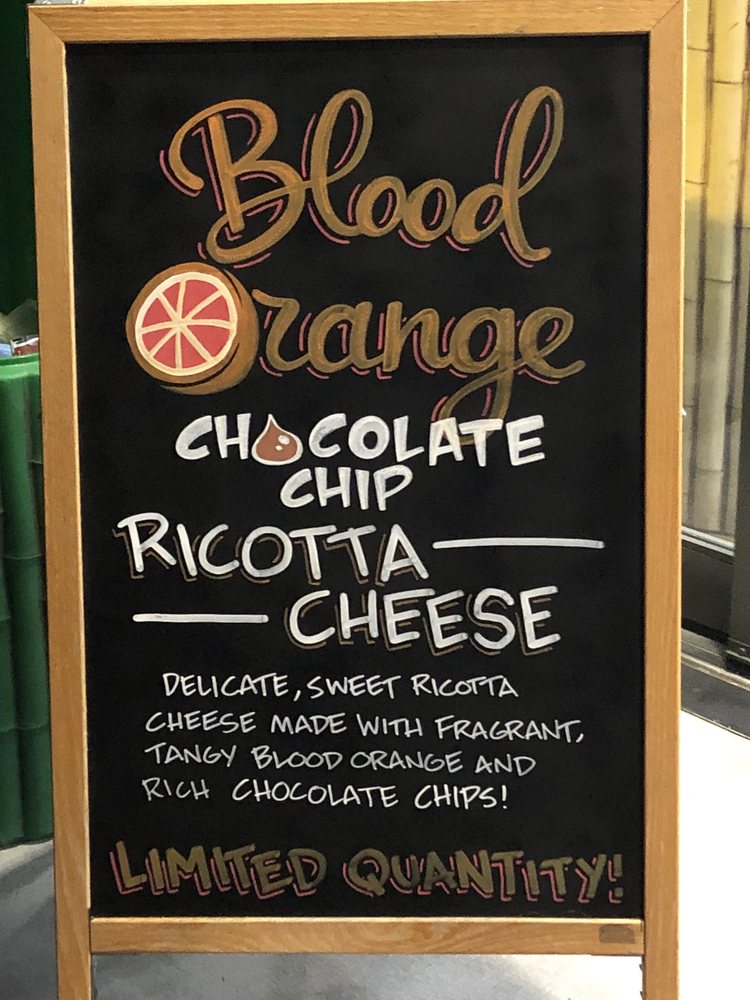 Blood
Orange
CHOCOLATE
CHIP
RICOTTA
CHEESE
DELICATE, SWEET RICOTTA
CHEESE MADE WITH FRAGRANT,
TANGY BLOOD ORANGE AND
RICH CHOCOLATE CHIPS!
LIMITED QUANTITY!